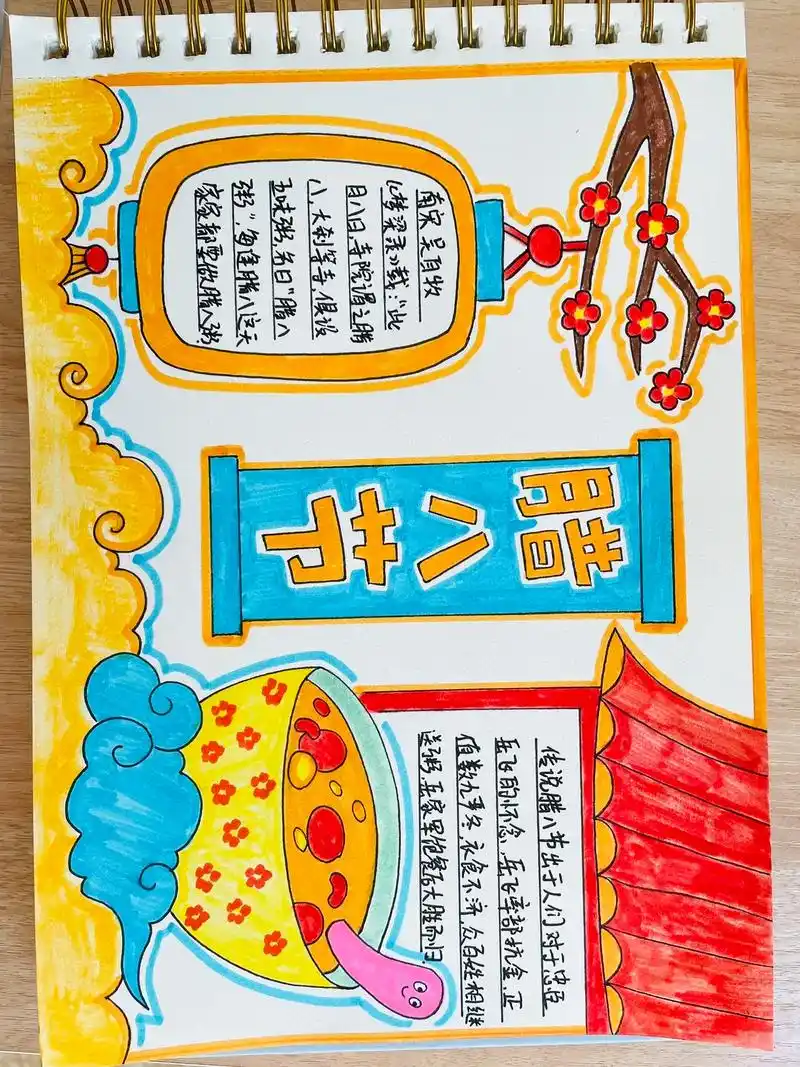 南宋吴自牧
《梦梁录》载:"此
日八日,寺院谓之腊
八,大刹等寺,俱设
五味粥,名曰"腊八
粥".每逢腊八这天
家家都要做腊八粥.
腊八节
传说腊八节出于人们对于忠臣
岳飞的怀念.岳飞率部抗金,正
值数九寒冬,衣食不济,众百姓相继
送粥,岳家军饱餐后大胜而归.